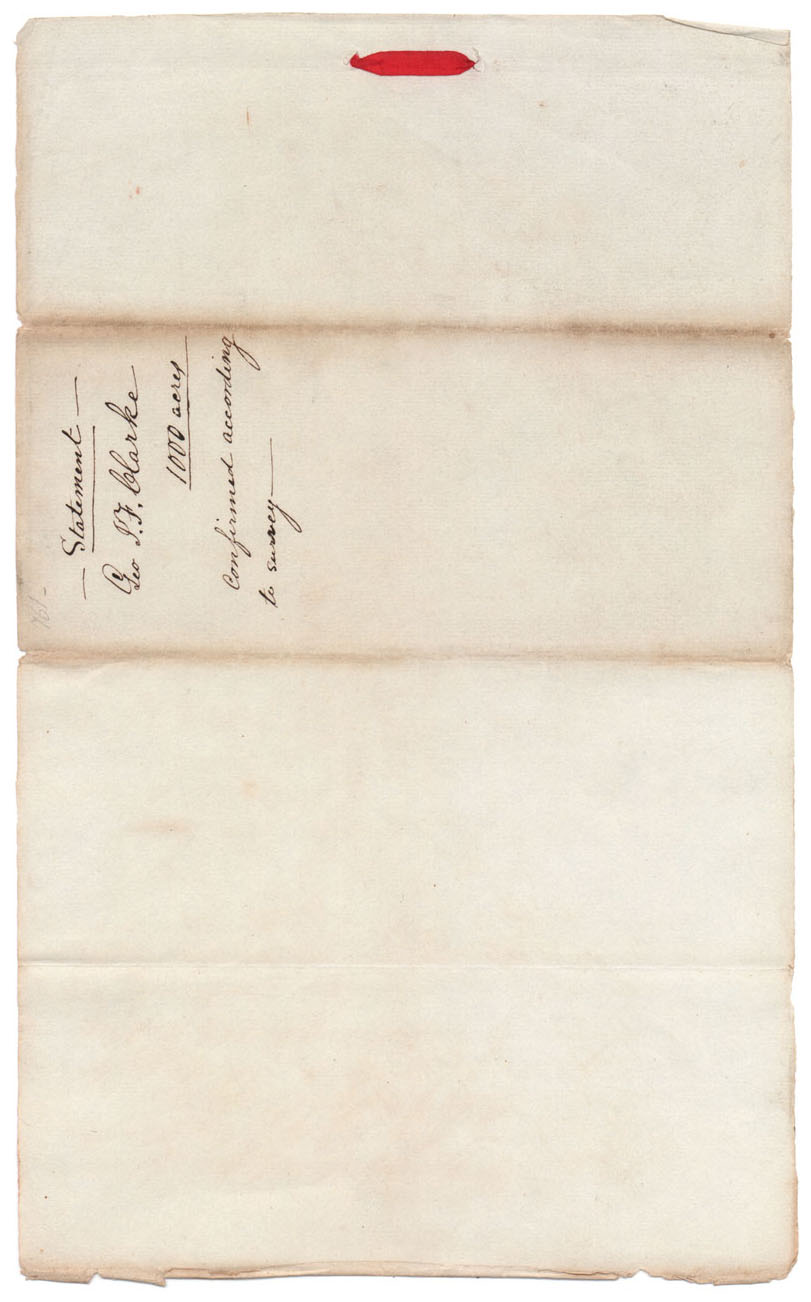 — Statement —
Geo J. F. Clarke
1000 acres
Confirmed according
to survey —